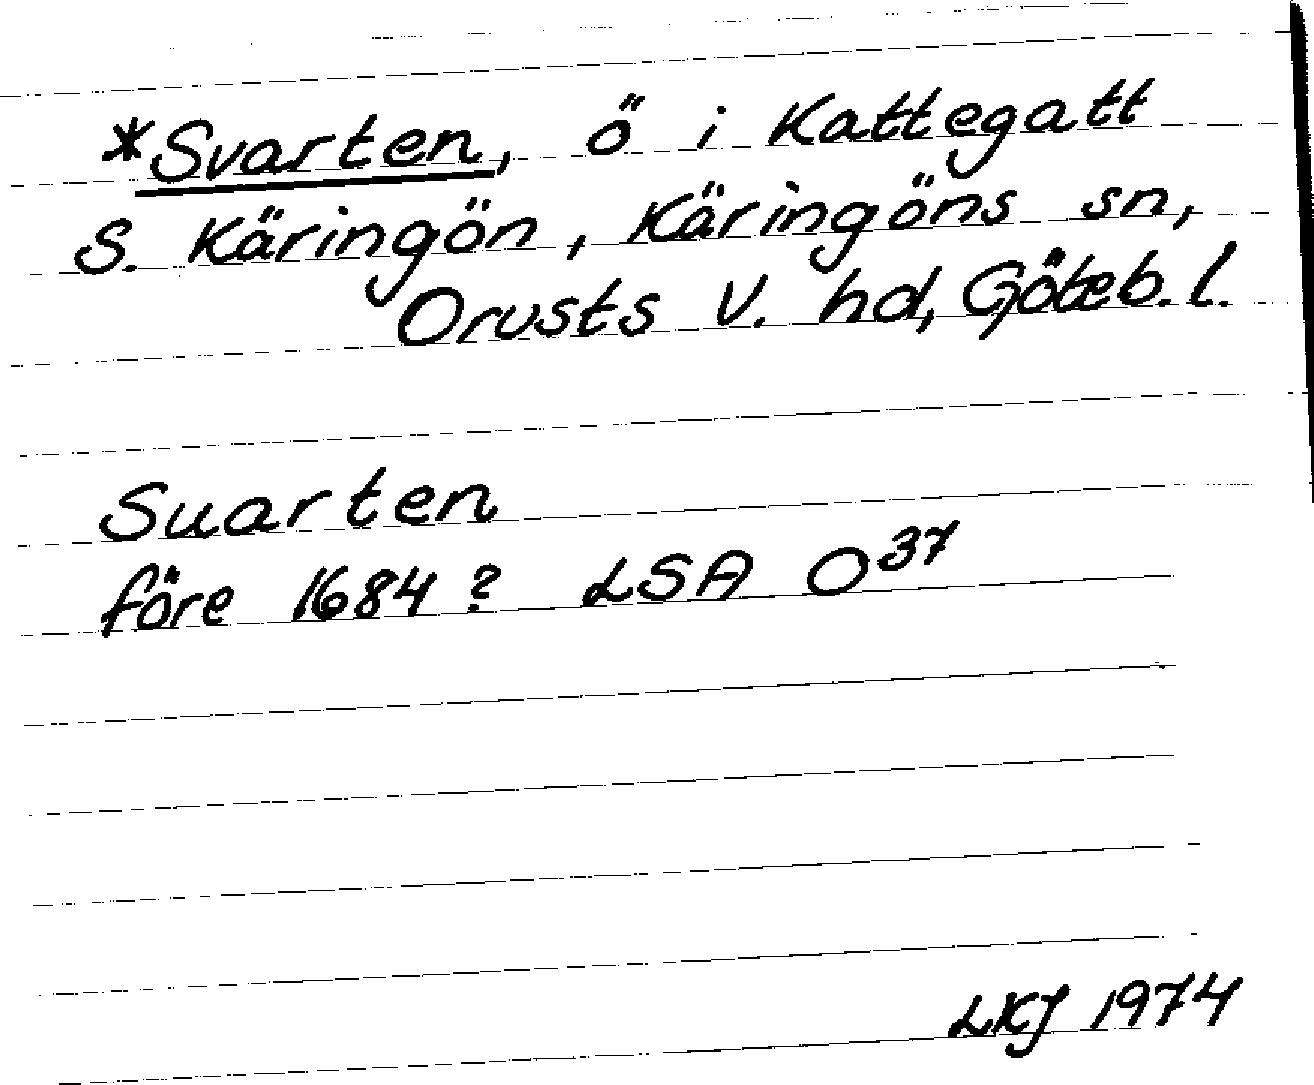 *Svarten, ö i Kattegatt
S. Käringön, Käringöns sn,
Orusts V. hd, Göteb. l.
Suarten
före 1684? LSA O³⁷
LKJ 1974